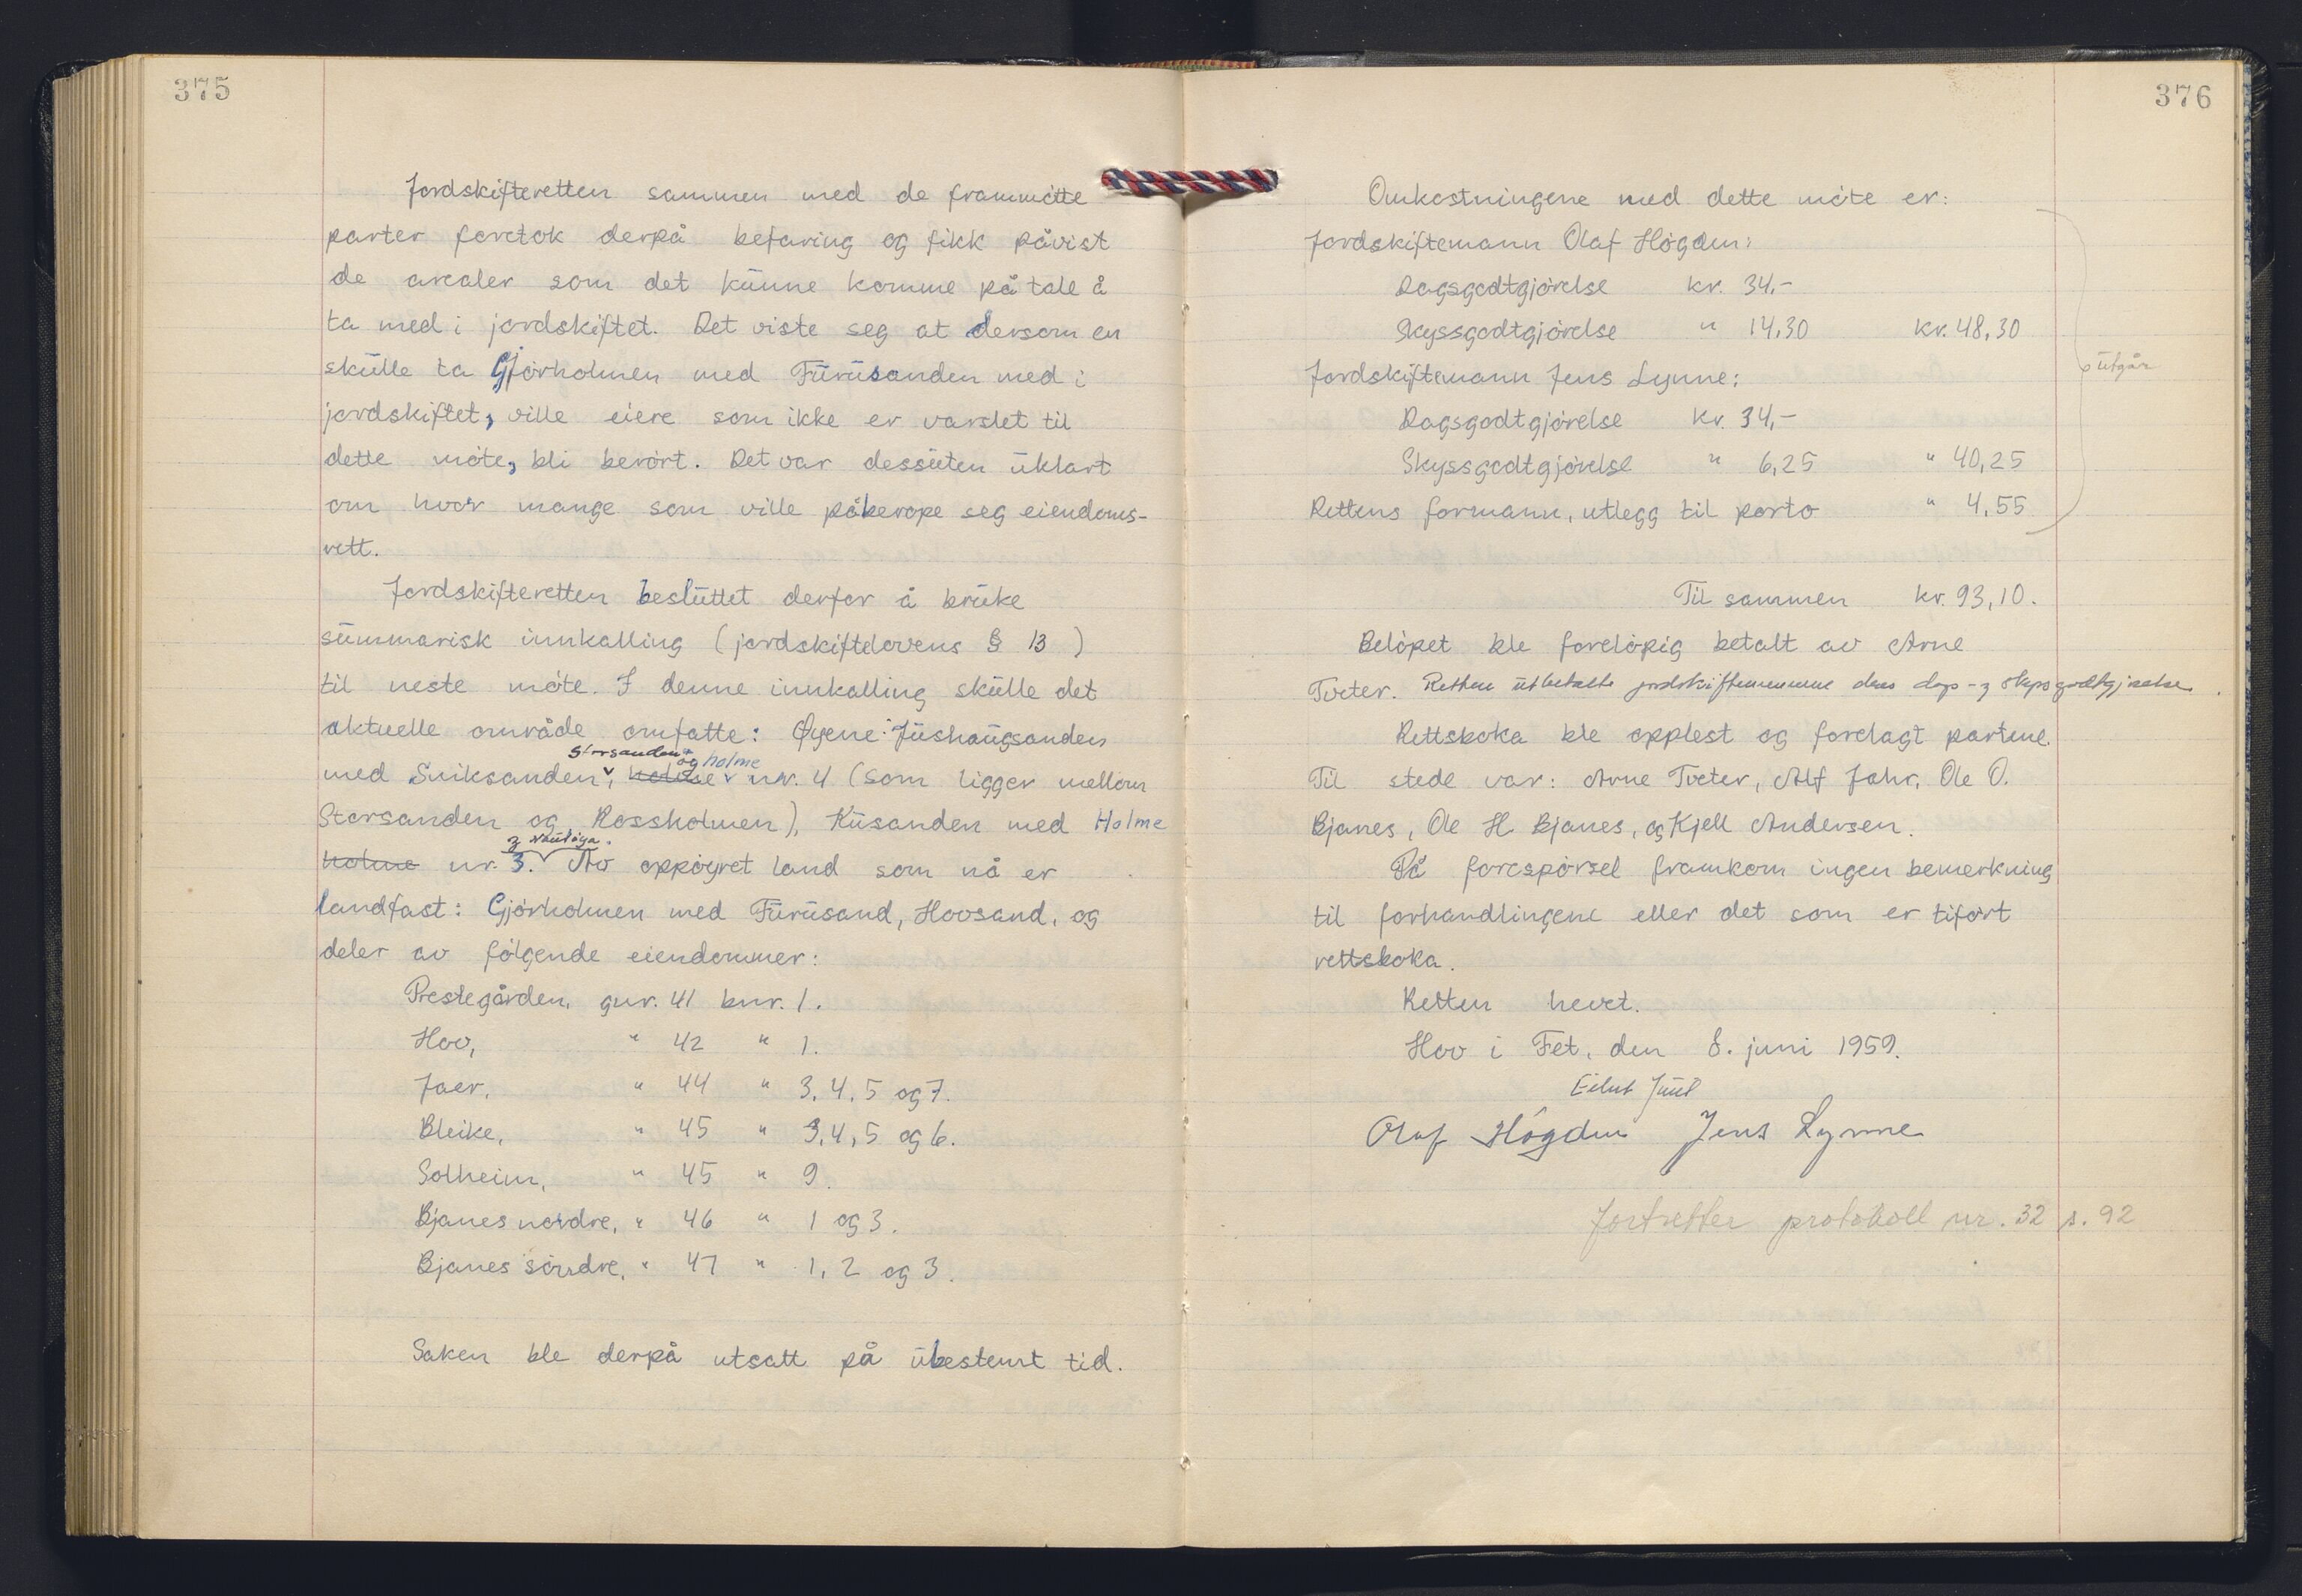 375
Jordskifteretten sammen med de frammötte
parter foretok derpå befaring og fikk påvist
de arealer som det kunne komme på tale å
ta med i jordskiftet. Det viste seg at dersom en
skulle ta Gjörholmen med Furusanden med i
jordskiftet, ville eiere som ikke er varslet til
dette möte, bli berört. Det var dessuten uklart
om hvor mange som ville påberope seg eiendoms-
rett.
Jordskifteretten besluttet derfor å bruke
summarisk innkalling (jordskiftelovens § 13 )
til neste möte. I denne innkalling skulle det
aktuelle område omfatte: Øyene: Jushaugsanden
Storsanden og holme
med Sniksanden, holme nr. 4 (som ligger mellom
Storsanden og Rossholmen), Kusanden med Holme
og
holme nr. 3. Av oppöyret land som nå er
landfast: Gjörholmen med Furusand, Hovsand, og
deler av fölgende eiendommer:
Prestegården, gnr. 41 bnr. 1.
Hov, " 42 " 1.
Jaer, " 44 " 3, 4, 5 og 7.
Bleike, " 45 " 3, 4, 5 og 6.
Solheim, " 45 " 9.
Bjanes nordre, " 46 " 1 og 3.
Bjanes söndre, " 47 " 1, 2 og 3.
Saken ble derpå utsatt på ubestemt tid.
376
Omkostningene med dette möte er:
Jordskiftemann Olaf Högden:
Dagsgodtgjörelse kr. 34.-
Skyssgodtgjörelse " 14,30 kr. 48,30
utgår
Jordskiftemann Jens Lynne:
Dagsgodtgjörelse kr. 34,-
Skyssgodtgjörelse " 6,25 " 40,25
Rettens formann, utlegg til porto " 4,55
Til sammen kr. 93,10.
Belöpet ble forelöpig betalt av Arne
Tveter. Retten utbetalte jordskiftemennene deres dags- og skyssgodtgjörelse.
Rettsboka ble opplest og forelagt partene.
Til stede var: Arne Tveter, Alf Jahr, Ole O.
Bjanes, Ole H. Bjanes, og Kjell Andersen.
På forespörsel framkom ingen bemerkning
til forhandlingene eller det som er tifört
rettsboka.
Retten hevet.
Hov i Fet, den 8. juni 1959.
Eilut Juul
Olaf Högden Jens Lynne
fortsetter protokoll nr. 32 s. 92